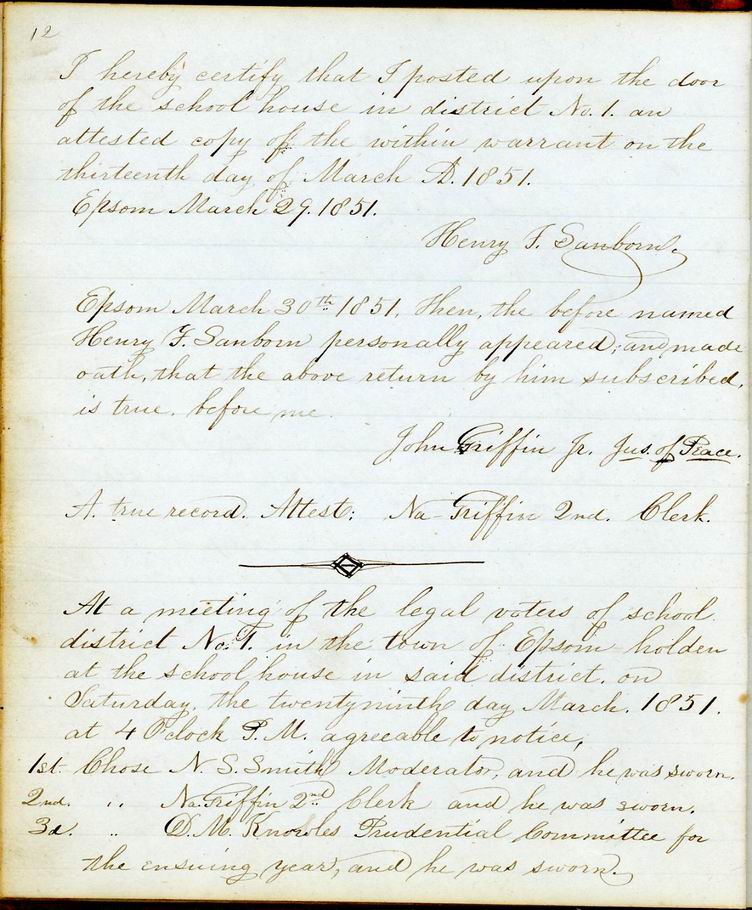 12
I hereby certify that I posted upon the door
of the school house in district No. 1. an
attested copy of the within warrant on the
thirteenth day of March A.D. 1851.
Epsom March 29. 1851.
Henry F. Sanborn.
Epsom March 30th 1851. Then, the before named
Henry F. Sanborn personally appeared; and made
oath, that the above return by him subscribed,
is true. before me.
John Griffin Jr. Jus. of Peace.
A. true record. Attest: Na- Griffin 2nd. Clerk.
At a meeting of the legal voters of school
district No. 1. in the town of Epsom holden
at the school house in said district. on
Saturday, the twentyninth day March. 1851.
at 4 O'clock P.M. agreeable to notice,
1st. Chose N. S. Smith Moderator, and he was sworn.
2nd. ,, Na. Griffin 2nd Clerk and he was sworn.
3d. ,, D. M. Knowles Prudential Committee for
the ensuing year, and he was sworn.